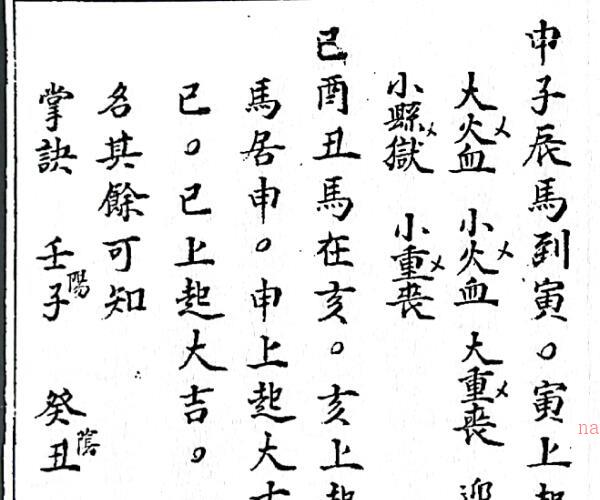 申子辰馬到寅。寅上起
大火血 小火血 大重喪 迎
小縣獄 小重喪
巳酉丑馬在亥。亥上起
馬居申。申上起大吉
巳。巳上起大吉。
名其餘可知
掌訣 壬子陽 癸丑陰
na